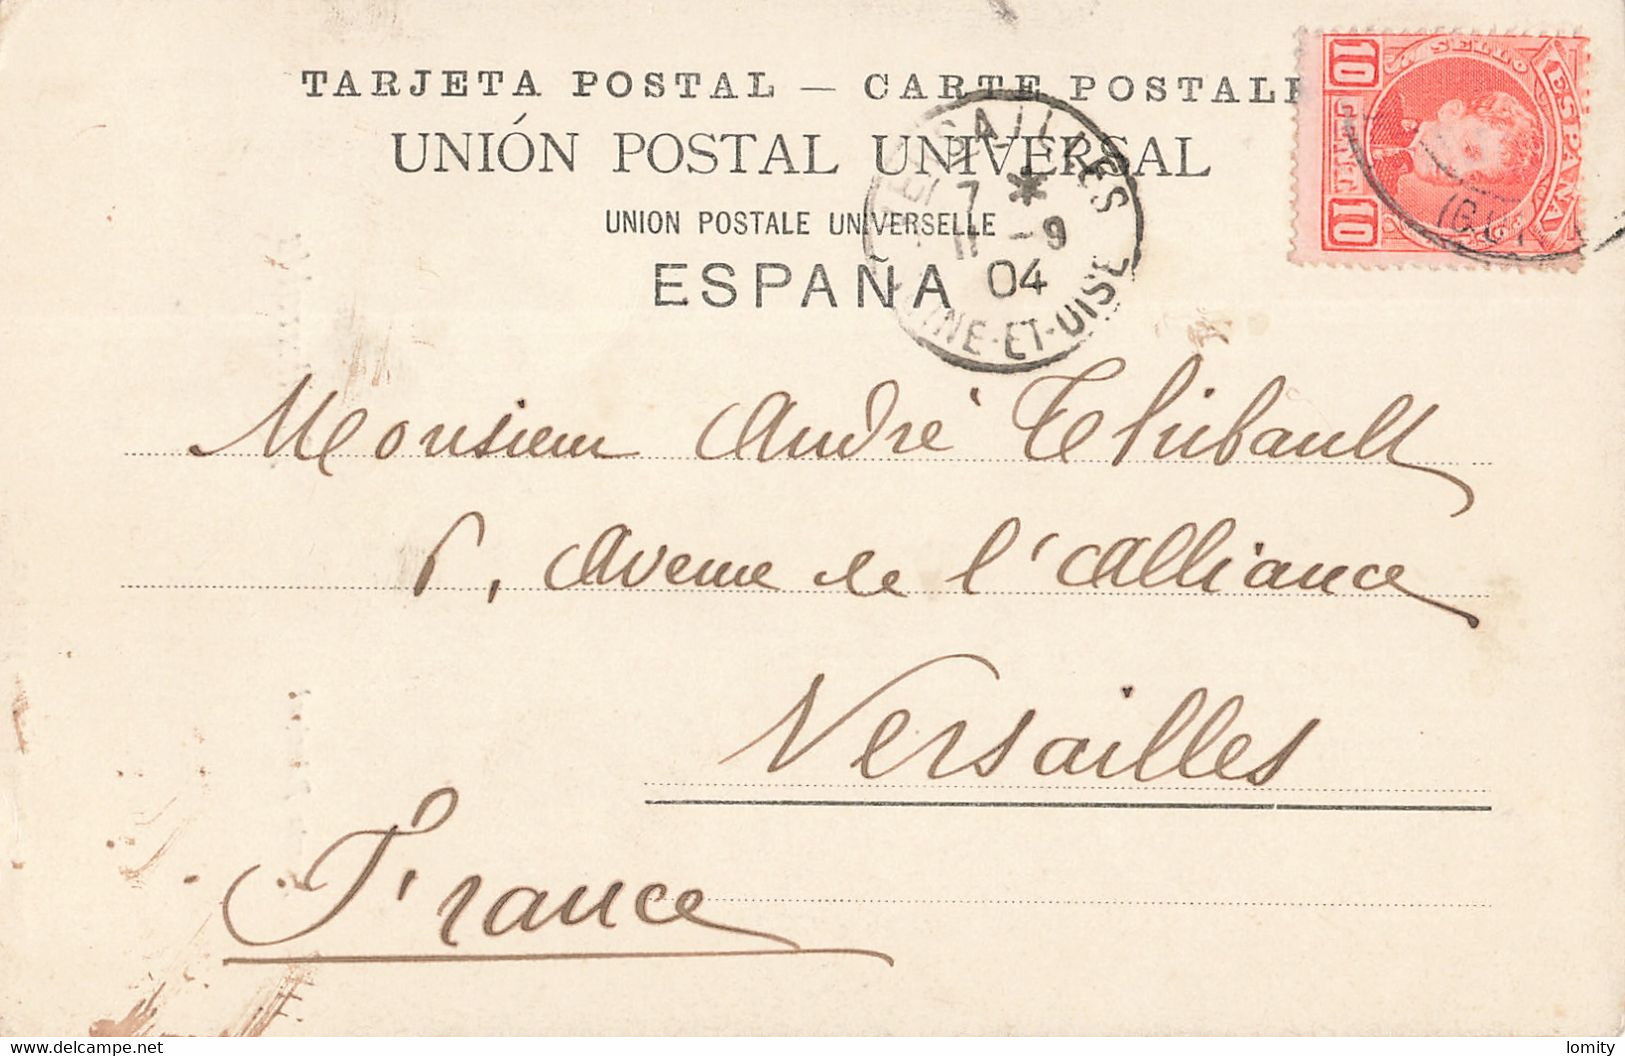 TARJETA POSTAL — CARTE POSTALE
UNIÓN POSTAL UNIVERSAL
UNION POSTALE UNIVERSELLE
ESPAÑA
VERSAILLES
7 *
11 - 9
04
SEINE-ET-OISE
10 SELLO ESPAÑA
10
(GUI
Monsieur André Thibault
6, Avenue de l'Alliance
Versailles
France
www.delcampe.net
lomity